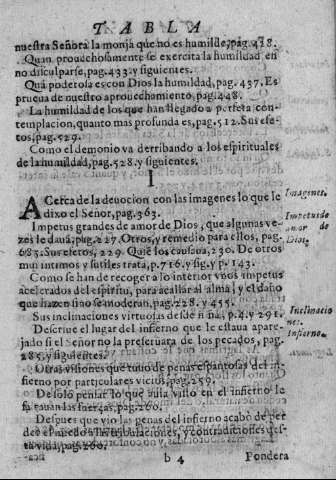 TABLA
nuestra Señora la monja que no es humilde, pag. 418.
Quan prouechosamente se exercita la humildad en
no disculparse, pag. 433. y siguientes.
Quã poderosa es con Dios la humildad, pag. 437. Es
prueua de nuestro aprouechamiento. pag. 448.
La humildad de los que han llegado a perfeta con-
templacion, quanto mas profunda es, pag. 512. Sus efe-
tos, pag. 529.
Como el demonio va derribando a los espirituales
de la humildad, pag. 528. y siguientes.
I
ACerca de la deuocion con las imagenes lo que le
dixo el Señor, pag. 363.
Imagenes.
Impetus grandes de amor de Dios, que algunas ve-
zes le daua, pag. 227. Otros, y remedio para ellos, pag.
683. Sus efetos, 229. Quiẽ los causaua, 230. De otros
muy intimos y sutiles trata, p. 716. y sig. y p. 143.
Impetus de
amor de
Dios.
Como se han de recoger a lo interior vnos impetus
acelerados del espiritu, para acallar al alma, y el daño
que hazen sino se moderan, pag. 228. y 455.
Sus inclinaciones virtuosas desde niña, p. 4. y 291.
Inclinacio
nes.
Descriue el lugar del infierno que le estaua apare-
jado si el Señor no la preseruara de los pecados, pag.
285. y siguientes.
Infierno.
Otras visiones que tuuo de penas espantosas del in-
fierno por particulares vicios, pag. 259.
De solo pensar lo que auia visto en el infierno le
faltauan las fuerças, pag. 260.
Despues que vio las penas del infierno acabò de per-
der el miedo a las tribulaciones, y contradiciones des-
ta vida, pag. 260.
b 4 Pondera